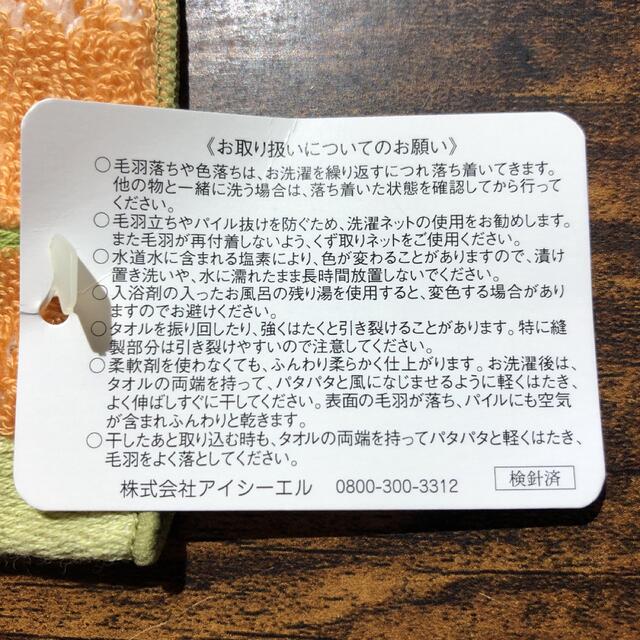 《お取り扱いについてのお願い》
○毛羽落ちや色落ちは、お洗濯を繰り返すにつれ落ち着いてきます。
他の物と一緒に洗う場合は、落ち着いた状態を確認してから行って
ください。
○毛羽立ちやパイル抜けを防ぐため、洗濯ネットの使用をお勧めします。
また毛羽が再付着しないよう、くず取りネットをご使用ください。
○水道水に含まれる塩素により、色が変わることがありますので、漬け
置き洗いや、水に濡れたまま長時間放置しないでください。
○入浴剤の入ったお風呂の残り湯を使用すると、変色する場合があり
ますのでお避けください。
○タオルを振り回したり、強くはたくと引き裂けることがあります。特に縫
製部分は引き裂けやすいので注意してください。
○柔軟剤を使わなくても、ふんわり柔らかく仕上がります。お洗濯後は、
タオルの両端を持って、パタパタと風になじませるように軽くはたき、
よく伸ばしすぐに干してください。表面の毛羽が落ち、パイルにも空気
が含まれふんわりと乾きます。
○干したあと取り込む時も、タオルの両端を持ってパタパタと軽くはたき、
毛羽をよく落としてください。
株式会社アイシーエル 0800-300-3312
検針済